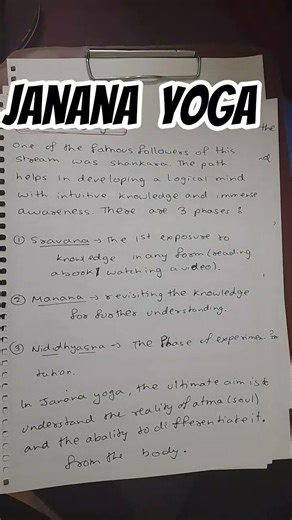 JANANA YOGA
the
One of the famous followers of this
stream was Shankara. The path
helps in developing a logical mind
with intuitive knowledge and immense
awareness. There are 3 phases :
① Sravana → The 1st exposure to
knowledge in any form (reading
a book / watching a video).
② Manana → revisiting the knowledge
for further understanding.
③ Niddhyasna → The Phase of experimen
tution.
In Janana yoga, the ultimate aim is to
understand the reality of atma (soul)
and the abality to differentiate it.
from the body.